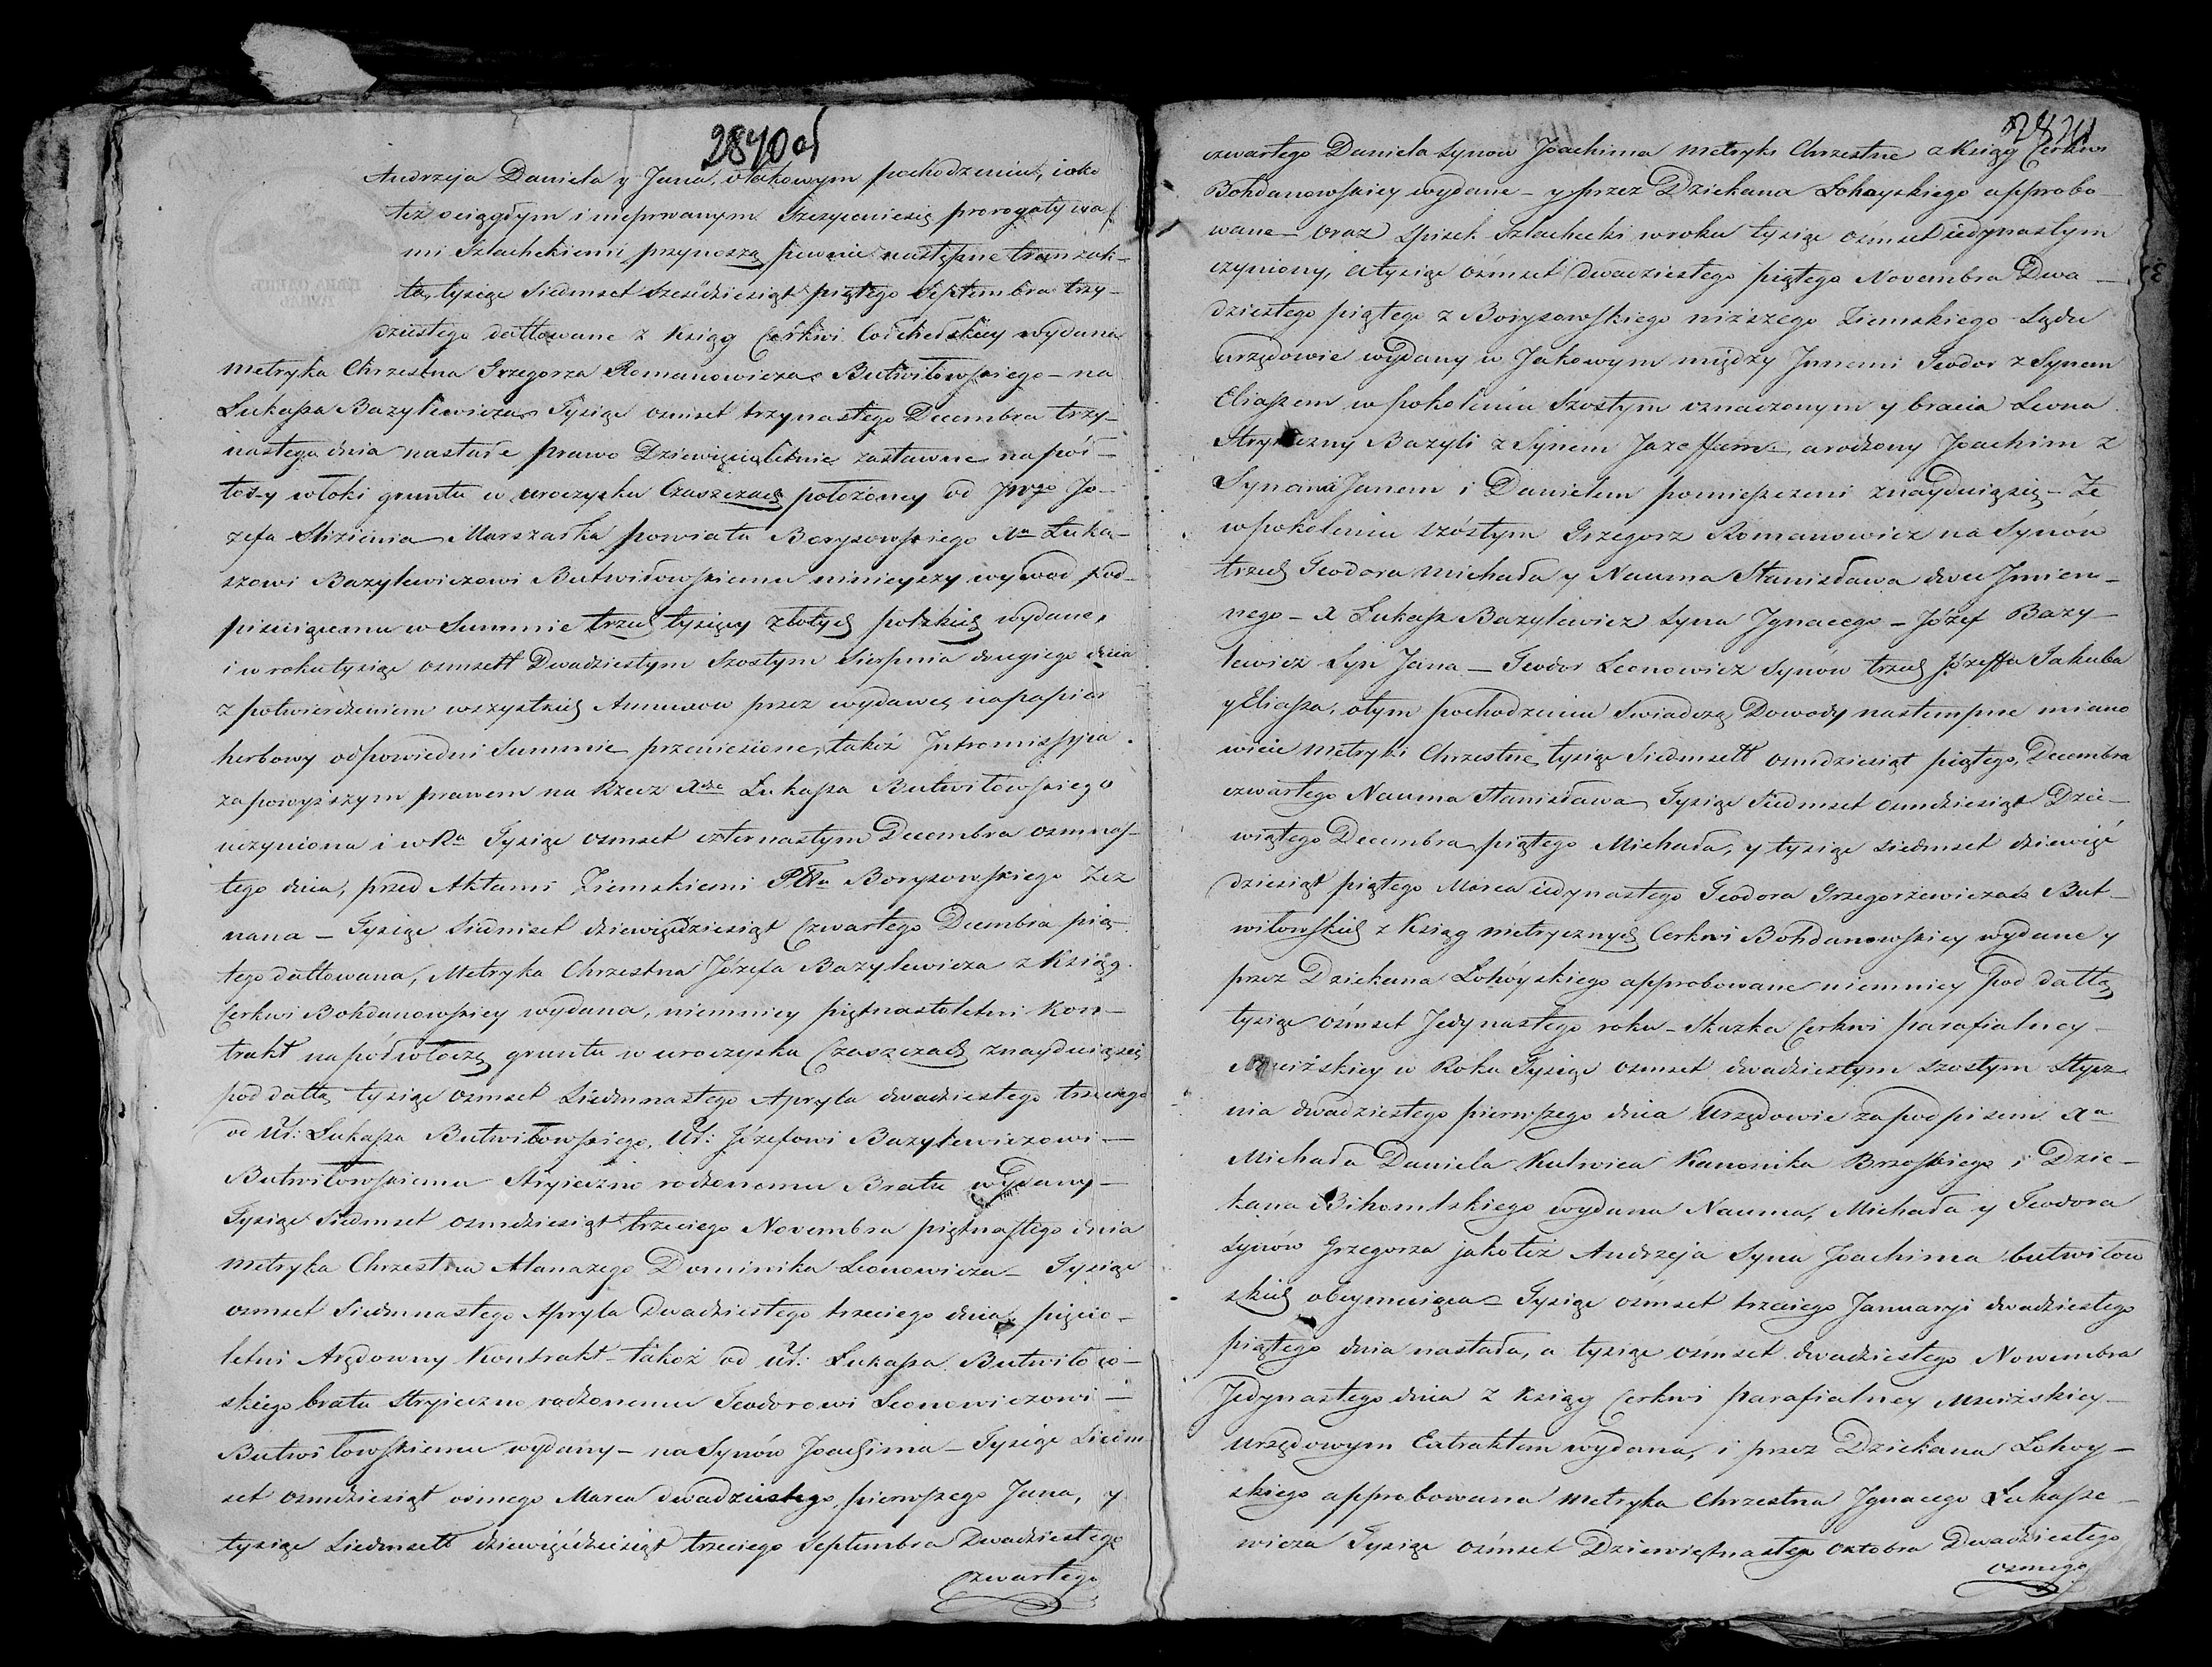 2840 об
Andrzeja Daniela y Jana, o takowym pochodzeniu, iako
też o ciągłym i nieprwanym szczyceniu się prerogatywa
mi Szlacheckiemi przynoszą pewnie następne tranzak-
ta, tysiąc Siedmset Sześdziesiąt piątego Septembra trzy-
dziestego dattowane z Ksiąg Cerkwi wydana
Metryka Chrzestna Grzegorza Romanowicza Butwiłowskiego – na
Łukasza Bazylewicza Tysiąc osmset trzynastego Decembra trzy-
nastego dnia nastałe prawo Dziewięcioletnie zastawne na pół-
tory włoki gruntu w uroczysku Czaszczach położoney od Jwgo Jo-
zefa Slizienia Marszałka powiatu Borysowskiego Xu Łuka-
szowi Bazylewiczowi Butwiłowskiemu ninieyszy wywod pod-
pisuiącemu w Summie trzech tysięcy złotych polskich wydane,
i w roku tysiąc osmsett Dwadziestym Szostym Sierpnia drugiego dnia
z potwierdzeniem wszystkich Annexow przez wydawcę na papier
herbowy odpowiedni Summie przeniesione, takoż Intromissyia
za powyższym prawem na Rzecz Xdza Łukasza Butwiłowskiego
uczyniona i w Ru Tysiąc osmset czternastym Decembra osmnas-
tego dnia, przed Aktami Ziemskiemi Pttu Borysowskiego Zez
nana – Tysiąc Siedmset dziewiędziesiąt Czwartego Decembra pią-
tego dattowana, Metryka Chrzestna Józefa Bazylewicza z Ksiąg
Cerkwi Bohdanowskiey wydana, niemniey piętnastoletni Kon-
trakt na półwłoczę gruntu w uroczysku Czaszczach znayduiący się
pod dattą tysiąc osmset Siedmnastego Apryla dwadziestego trzeciego
od Ur: Łukasza Butwiłowskiego, Ur: Józefowi Bazylewiczowi –
Butwiłowskiemu Stryieczno rodzonemu Bratu wydany –
Tysiąc Siedmset osmdziesiąt trzeciego Novembra piętnastego dnia
Metryka Chrzestna Atanazego Dominika Leonowicza – Tysiąc
osmset Siedmnastego Apryla Dwadziestego trzeciego dnia, pięcio-
letni Arędowny Kontrakt – takoż od Ur: Łukasza Butwiłow-
skiego bratu stryieczno rodzonemu Teodorowi Leonowiczowi –
Butwiłowskiemu wydany – na Synów Joachima – Tysiąc Siedm
set osmdziesiąt osmego Marca dwadziestego pierwszego Jana, y
tysiąc Siedmsett dziewięćdziesiąt trzeciego Septembra Dwadziestego
czwartego
2841
czwartego Daniela Synow Joachima Metryki Chrzestne z Ksiąg Cerkwi
Bohdanowskiey wydane – y przez Dziekana Łohoyskiego approbo
wane – oraz Spisek Szlachecki w roku tysiąc osmset iedynastym
czyniony, a tysiąc osmset dwadziestego piątego Novembra Dwa –
dziestego piątego z Borysowskiego niższego Ziemskiego Sądu
urzędowie wydany w Jakowym między Innemi Teodor z Synem
Eliaszem w pokoleniu Szostym oznaczonym y bracia Leona
Stryieczny Bazyli z Synem Jozeffem, a rodzony Joachim z
Synami Janem i Danielem pomieszczeni znayduią się – Że
w pokoleniu szóstym Grzegorz Romanowicz na Synów
trzech Teodora Michała y Nauma Stanisława dwu Jmien-
nego – X Łukasz Bazylewicz syna Jgnacego – Józef Bazy-
lewicz Syn Jana – Teodor Leonowicz Synów trzech Józeffa Jakuba
y Eliasza, o tym pochodzeniu Swiadczą Dowody nastempne miano
wicie Metryki Chrzestne, tysiąc Siedmsett osmdziesiąt piątego, Decembra
czwartego Nauma Stanisława, Tysiąc Siedmset osmdziesiąt Dzie-
wiątego Decembra piątego Michała, y tysiąc siedmset dziewięć
dziesiąt piątego Marca iedynastego Teodora Grzegorzewiczow But-
wiłowskich z Ksiąg metrycznych Cerkwi Bohdanowskiey wydane y
przez Dziekana Łohóyskiego approbowane niemniey pod dattą
tysiąc osmset Jedynastego roku – Skazka Cerkwi parafialney –
Mściżskiey w Roku Tysiąc osmset dwadziestym szostym Stycz
nia dwadziestego pierwszego dnia Urzędowie za podpisem Xa
Michała Daniela Kulwica Kanonika Brzeskiego i Dzie-
kana Bihomlskiego wydana Nauma, Michała y Teodora
Synów Grzegorza jakoteż Andrzeja Syna Joachima butwiłow
skich obeymuiąca – Tysiąc osmset trzeciego Januaryi dwadziestego
piątego dnia nastała, a tysiąc osmset dwadziestego Nowembra
Jedynastego dnia z Ksiąg Cerkwi parafialney Mściżskiey –
Urzędowym Extraktem wydana, i przez Dziekana Łohoy-
skiego approbowana Metryka Chrzestna Jgnacego Łukasze-
wicza Tysiąc osmset Dziewiętnastego Oktobra Dwadziestego
osmego